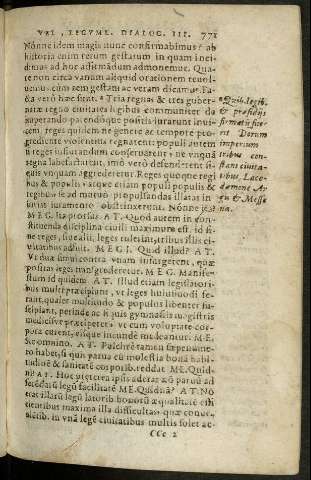 VEL LEGVM. DIALOG. III. 771
Nónne idem magis nunc confirmabimus? ab
historia enim rerum gestarum in quam inci-
dimus ad hoc admonemur. Qua-
re non circa vanum aliquid orationem
sed circa gestum ac veram dicamus.
verò hæc sunt. Tria regna & tres guber-
regno ciuitates legibus communiter
superando parendóque positis iurarunt
cem, reges quidem ne genere ac tempore pro-
grediente violentius regnarent: populi autem
si reges iusiurandum conseruarent, ne vnquã
regna labefactarent, imò verò defenderent si-
quis vnquam aggrederetur. Reges quoque regi
bus & populis, atque etiam populi populis &
regibus se ad mutuò propulsandas illatas in-
iurias iuramento obstrinxerunt. Nónne
MEG. Ita prorsus. AT. Quod autem in con-
stituenda disciplina ciuili maximum est, id si-
ne reges, siue alij, leges tulerint, tribus illis ci-
uitatibus adfuit. MEGI. Quid illud? AT.
Vt duæ simul contra vnam insurgerent, quæ
positas leges transgrederetur. MEG. Manife-
stum id quidem. AT. Illud etiam legislatori-
bus multi præcipiunt, vt leges huiusmodi fe-
rant, quales multitudo & populus libenter su-
scipiant, perinde ac si quis gymnasiis magistris
medicisve præciperet, vt cum voluptate cor-
pora curent, eísque iucundè medeantur. ME.
Sic omnino. AT. Pulchrè tamen sæpenume-
ro habet, si quis parua cũ molestia bona habi-
tudinẽ & sanitatẽ corporib. reddat. ME. Quid-
ni? AT. Hoc præterea ipsis aderat nõ paruũ ad
legũ facilitatẽ ME. Quidnã? AT. Nõ
erat illarũ legũ latorib. bonorũ æqualitatẽ
maxima illa difficultas, quæ
in vna legẽ ciuitatibus multis solet ac-
CCc 2
Quib. legib.
& præsidijs
firmatũ
rit Dorum
imperium
tribus con-
stans ciuita-
tibus, Lace-
dæmone Ar
go & Messe
na.